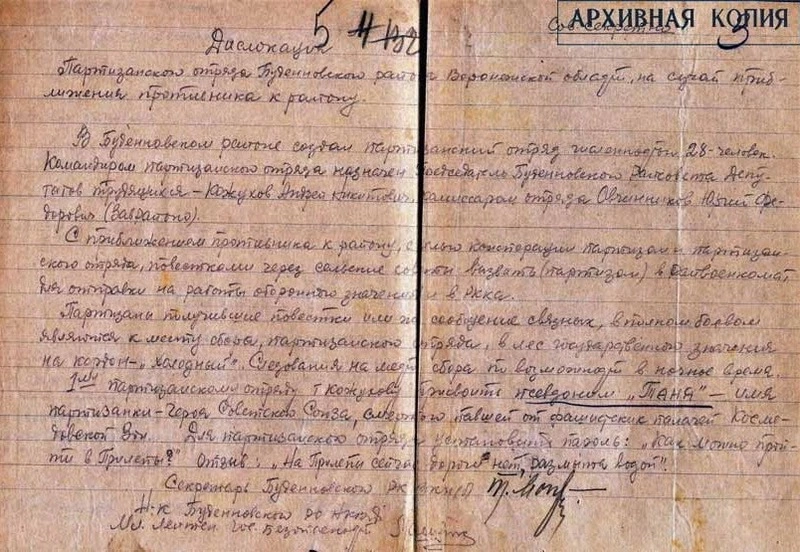 АРХИВНАЯ КОПИЯ
Сов. секретно
5
5
Дислокация
Партизанского отряда Буденновского района Воронежской области, на случай приб-
лижения противника к району.
В Буденновском районе создан партизанский отряд численностью 28-человек.
Командиром партизанского отряда назначен председатель Буденновского Райсовета Депу-
татов трудящихся – Кожухов Андрей Никитович, комиссаром отряда Овчинников Юрий Фе-
дорович (Заврайоно).
С приближением противника к району, с целью консперации партизан и партизан-
ского отряда, повестками через сельские советы вызвать (партизан) в Райвоенкомат
для отправки на работы оборонного значения и в РККА.
Партизаны получившие повестки или по сообщению связных, в полном боевом
являются к месту сбора, партизанского отряда, в лес государственного значения
на кордон – "Холодный". Следования на место сбора по возможности в ночное время.
партизанскому отряду т. Кожухову присвоить псевдоним "Таня" – имя
партизанки-героя Советского Союза, павшей от фашистских палачей Космо-
демьянской Для партизанского отряда установить пароль: "Как можно прой-
ти в Прилепы?" Отзыв: "На Прилепы сейчас дороги нет, размыта водой".
Секретарь Буденновского РК ВКП(б)
Н-к Буденновского РО НКВД
Мл. Лейтен. Гос. Безопасности